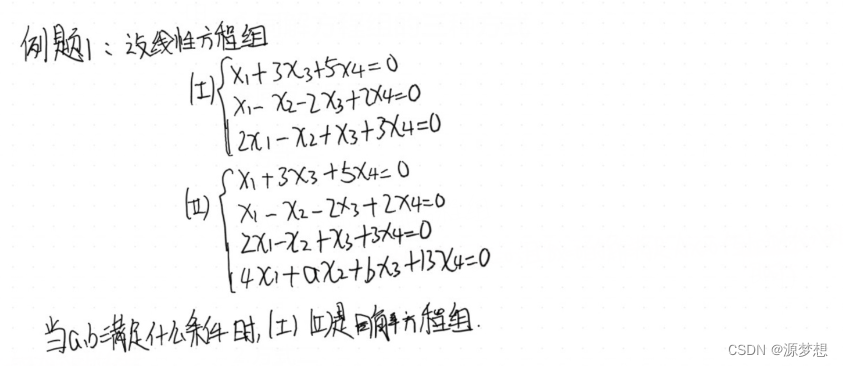 例题1：设线性方程组
(I) x1+3x3+5x4=0
x1-x2-2x3+2x4=0
2x1-x2+x3+3x4=0
(II) x1+3x3+5x4=0
x1-x2-2x3+2x4=0
2x1-x2+x3+3x4=0
4x1+ax2+bx3+13x4=0
当a,b满足什么条件时,(I) (II)是同解方程组.
CSDN @源梦想